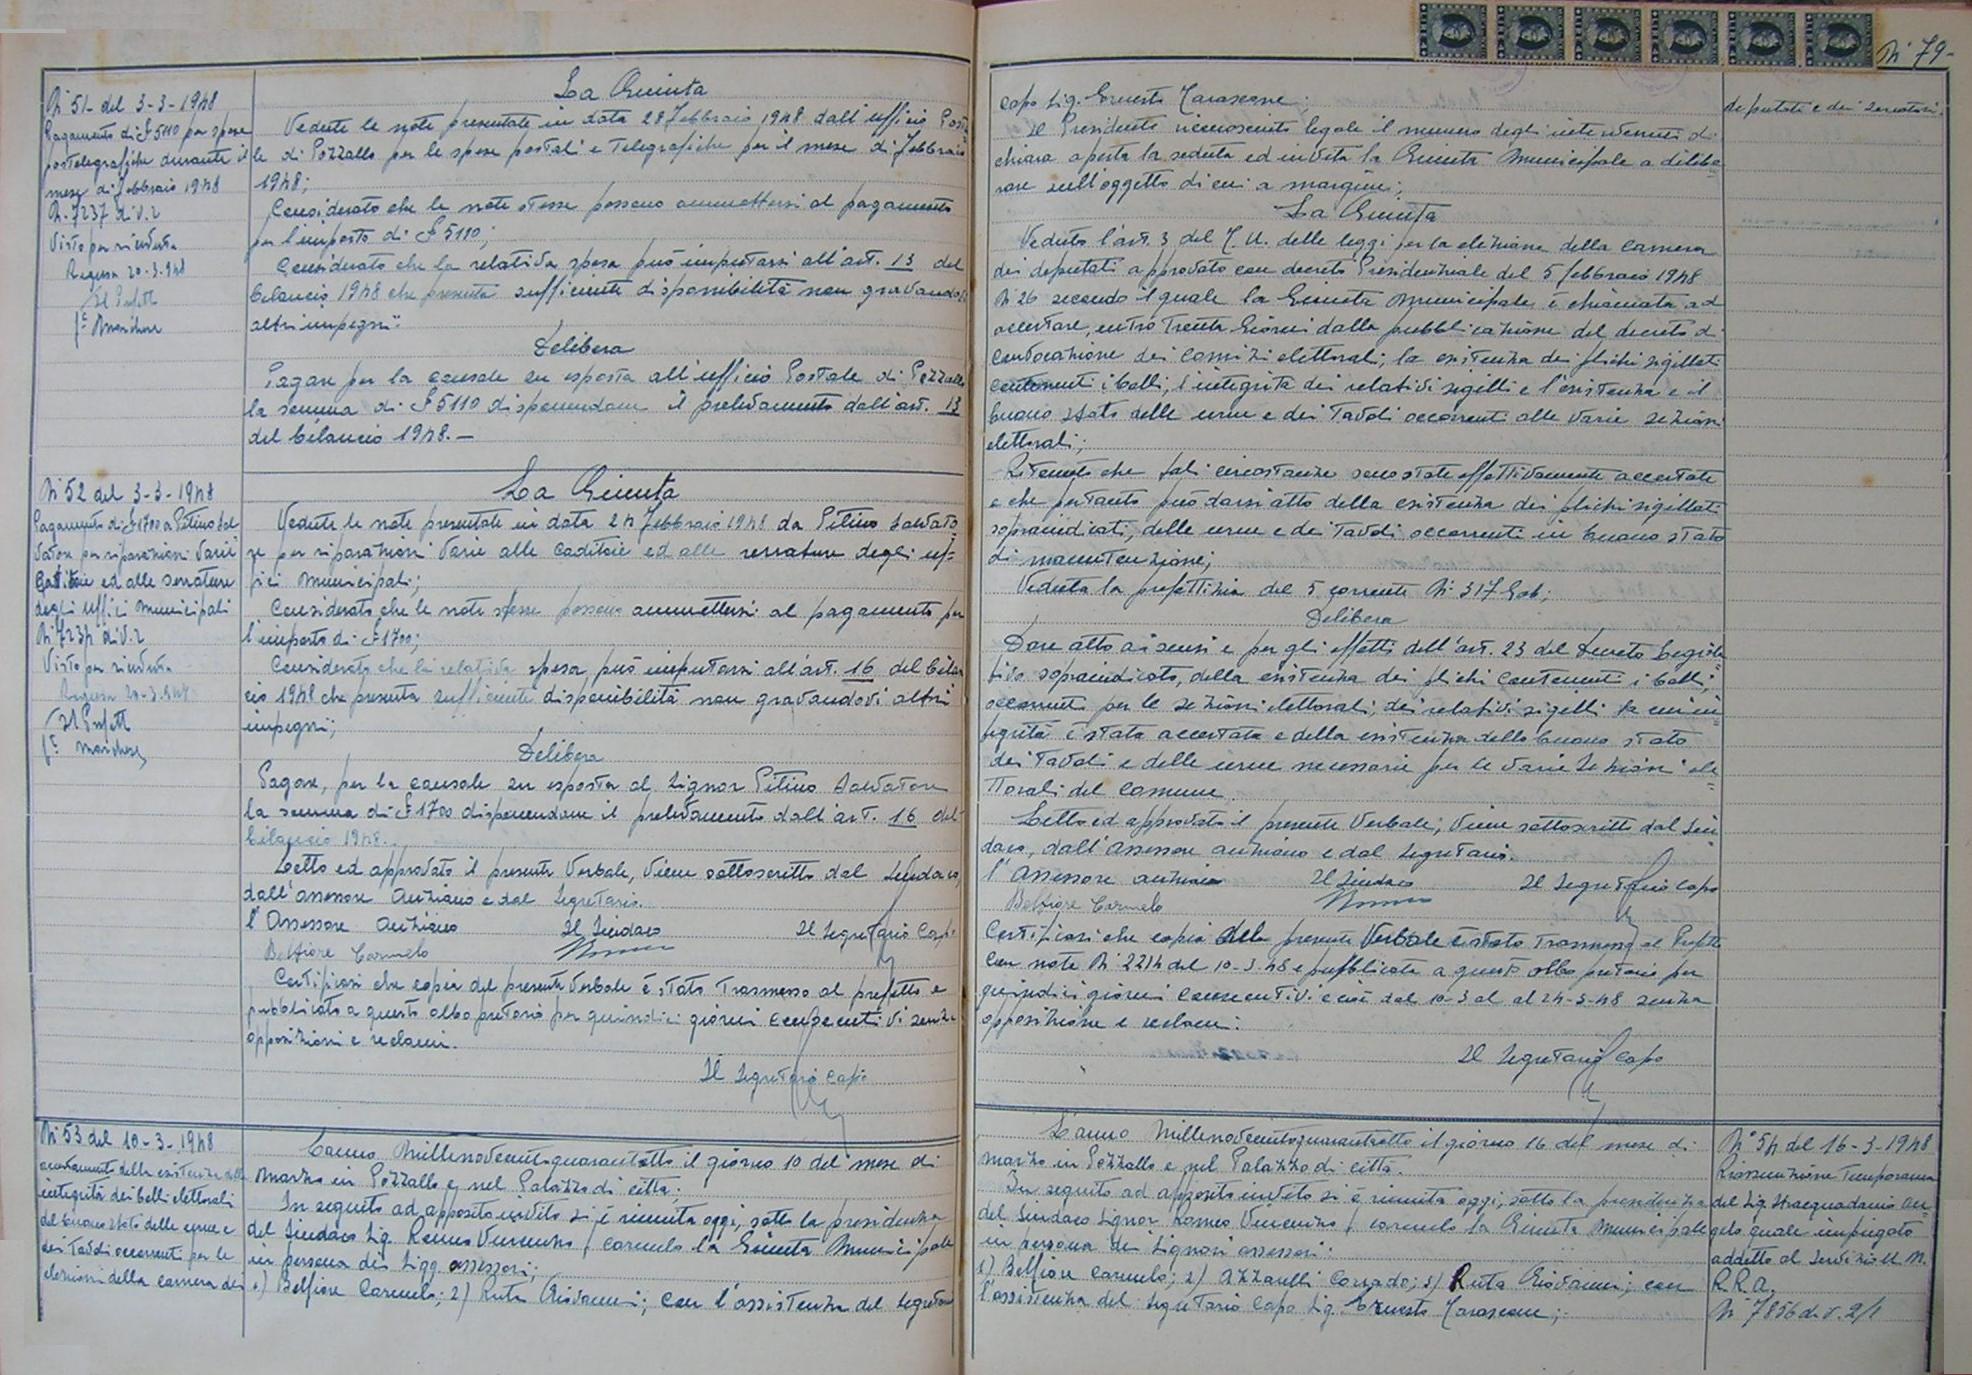 N° 79-
N° 51- del 3-3-1948
Pagamento di £ 5110 per spese
postelegrafiche durante il
mese di febbraio 1948
N. 7237 div. 2
Visto per
Ragusa 20-3-948
Il Prefetto
La Giunta
Vedute le note presentate in data 28 febbraio 1948 dall'ufficio Posta
le di Pozzallo per le spese postali e telegrafiche per il mese di febbraio
1948;
Considerato che le note stesse possono ammettersi al pagamento
per l'importo di £ 5110;
Considerato che la relativa spesa può imputarsi all'art. 13 del
bilancio 1948 che presenta sufficiente disponibilità non gravandovi
altri impegni:
Delibera
Pagare per la causale su esposta all'ufficio Postale di Pozzallo
la somma di £ 5110 disponendone il prelevamento dall'art. 13
del bilancio 1948.-
N° 52 del 3-3-1948
Pagamento di £ 1700 a Pitino Sal
vatore per riparazioni varie
caditoie ed alle serrature
degli uffici municipali
N° 7234 div. 2
Visto per
Ragusa 20-3-948
Il Prefetto
La Giunta
Vedute le note presentate in data 24 febbraio 1948 da Pitino Salvato
re per riparazioni varie alle caditoie ed alle serrature degli uf=
fici municipali;
Considerato che le note stesse possono ammettersi al pagamento per
l'importo di £ 1700;
Considerato che la relativa spesa può imputarsi all'art. 16 del bilan
cio 1948 che presenta sufficiente disponibilità non gravandovi altri
impegni;
Delibera
Pagare, per la causale su esposta al Signor Pitino Salvatore
la somma di £ 1700 disponendone il prelevamento dall'art. 16 del
bilancio 1948.
Letto ed approvato il presente verbale, viene sottoscritto dal Sindaco,
dall'assessore anziano e dal Segretario.
l'Assessore anziano Il Sindaco Il Segretario Capo
Belfiore Carmelo
Certificasi che copia del presente verbale è stato trasmesso al prefetto e
pubblicato a questo albo pretorio per quindici giorni consecutivi senza
opposizioni e reclami.
Il Segretario Capo
N° 53 del 10-3-1948
accertamento della esistenza della
integrità dei bolli elettorali
del buono stato delle urne e
dei tavoli occorrenti per le
elezioni della camera dei
L'anno Millenovecentoquarantotto il giorno 10 del mese di
marzo in Pozzallo e nel Palazzo di città,
In seguito ad apposito invito si è riunita oggi, sotto la presidenza
del Sindaco Sig. Romeo Vincenzo / Carmelo la Giunta Municipale
in persona dei Sigg. assessori;
1) Belfiore Carmelo; 2) Ruta Giovanni; con l'assistenza del Segretario
capo Sig. Ernesto Tarascone;
Il Presidente riconosciuto legale il numero degli intervenuti di
chiara aperta la seduta ed invita la Giunta Municipale a delibe
rare sull'oggetto di cui a margine;
La Giunta
Veduto l'art. 3 del T. U. delle leggi per la elezione della camera
dei deputati approvato con decreto Presidenziale del 5 febbraio 1948
N° 26 secondo il quale la Giunta municipale è chiamata ad
accertare, entro trenta giorni dalla pubblicazione del decreto di
convocazione dei comizi elettorali, la esistenza dei plichi sigillati
contenenti i bolli, l'integrità dei relativi sigilli e l'esistenza e il
buono stato delle urne e dei tavoli occorrenti alle varie sezioni
elettorali;
Ritenuto che tali circostanze sono state effettivamente accertate
e che pertanto può darsi atto della esistenza dei plichi sigillati
sopraindicati, delle urne e dei tavoli occorrenti in buono stato
di manutenzione;
Veduta la prefettizia del 5 corrente N° 317 Gab;
Delibera
Dare atto ai sensi e per gli effetti dell'art. 23 del Decreto Legisla
tivo sopraindicato, della esistenza dei plichi contenenti i bolli,
occorrenti per le sezioni elettorali, dei relativi sigilli la cui in=
tegrità è stata accertata e della esistenza dello buono stato
dei tavoli e delle urne necessarie per le varie sezioni elet=
torali del comune
Letto ed approvato il presente verbale, viene sottoscritto dal Sin
daco, dall'assessore anziano e dal Segretario.
l'Assessore anziano Il Sindaco Il Segretario Capo
Belfiore Carmelo
Certificasi che copia del presente verbale è stato trasmesso al Prefetto
con nota N° 2214 del 10-3-48 e pubblicata a questo albo pretorio per
quindici giorni consecutivi e cioè dal 10-3 al al 24-3-48 senza
opposizione e reclami:
Il Segretario Capo
deputati e dei senatori.
L'anno Millenovecentoquarantotto il giorno 16 del mese di
marzo in Pozzallo e nel Palazzo di città.
In seguito ad apposito invito si è riunita oggi, sotto la presidenza
del Sindaco Signor Romeo Vincenzo / Carmelo la Giunta Municipale
in persona dei Signori assessori:
1) Belfiore Carmelo; 2) Azzarelli Corrado; 3) Ruta Giovanni; con
l'assistenza del Segretario Capo Sig. Ernesto Tarascone;
N° 54 del 16-3-1948
Riassunzione temporanea
del Sig. Stracquadanio An=
gelo quale impiegato
addetto al servizio U.N.
R.R.A.
N° 7856 div. 2/1